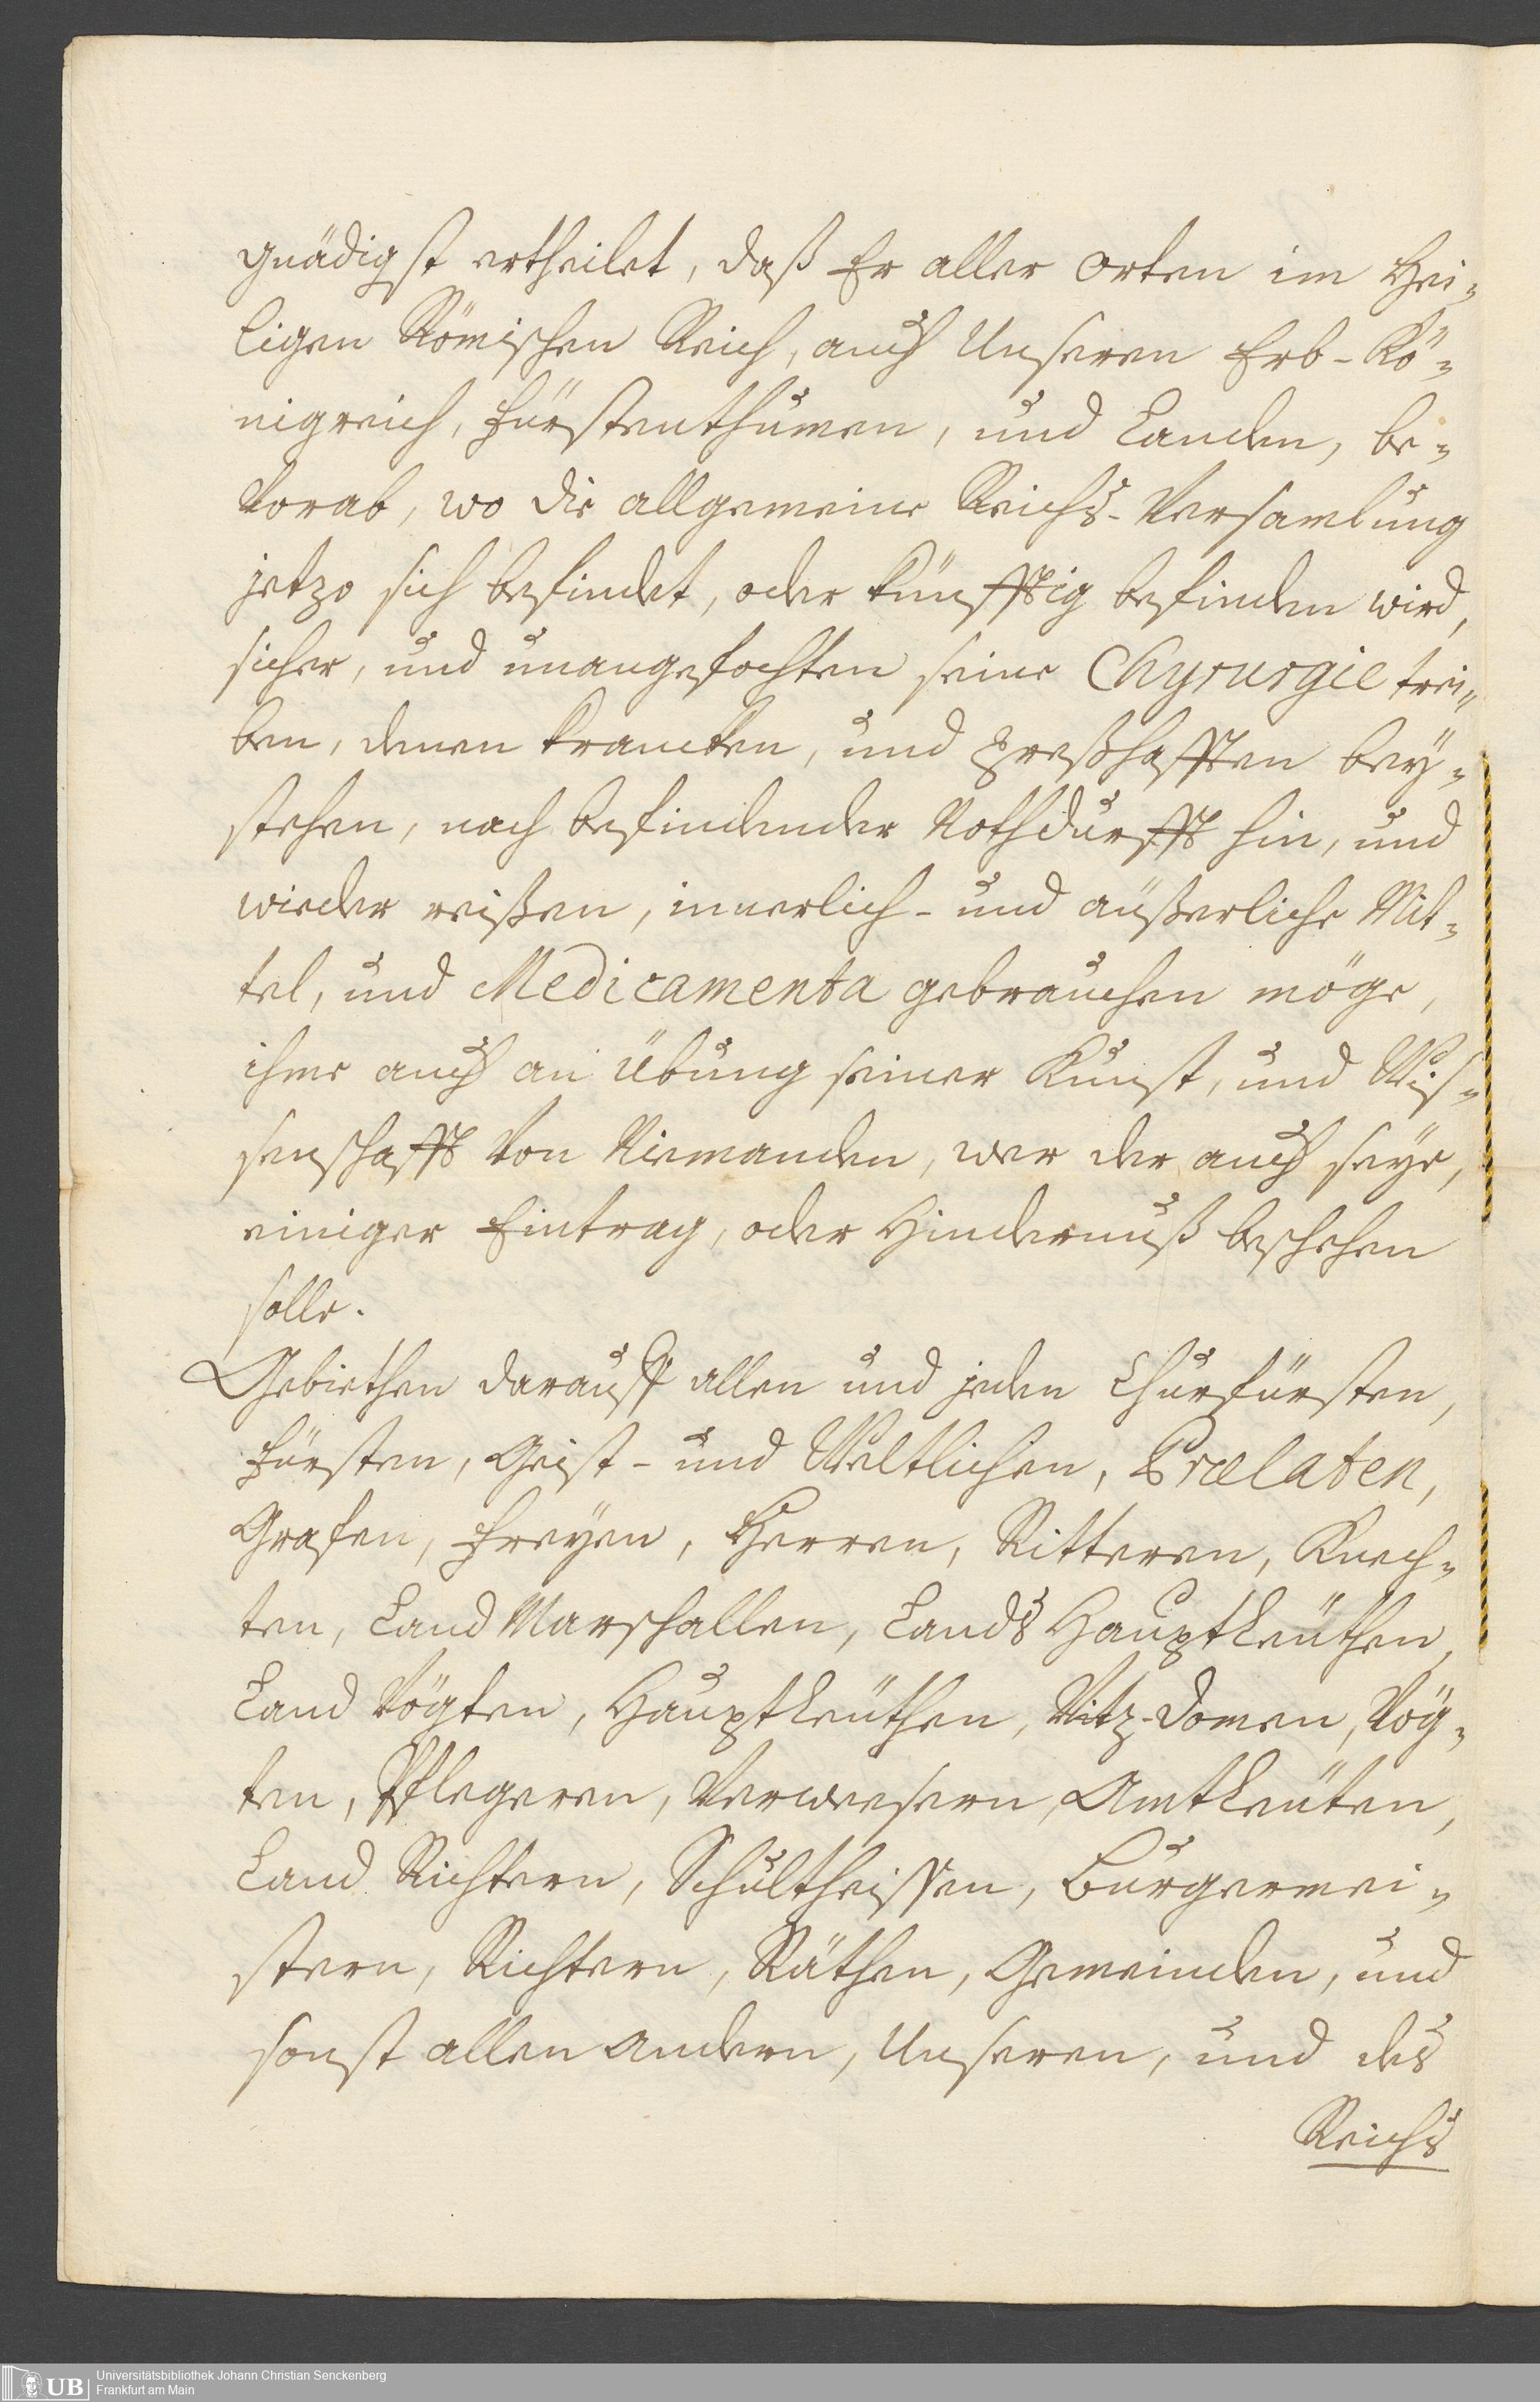 gnädigst ertheilet, daß Er aller orten im Hei-
ligen Römischen Reich, auch Unseren Erb-Kö-
nigreich, Fürstenthumen, und Landen, be-
vorab, wo die allgemeine Reichs-Versamlung
jetzo sich befindet, oder künfftig befinden wird,
sicher, und unangefochten seine Chyrurgie trei-
ben, denen krancken, und preßhafften bey-
stehen, nach befindender Nothdurfft hin, und
wieder reißen, innerlich- und äußerliche Mit-
tel, und Medicamenta gebrauchen möge,
ihme auch an übung seiner Kunst, und Wis-
senschafft von Niemanden, wer der auch seye,
einiger Eintrag, oder Hindernuß beschehen
solle.
Gebiethen darauff allen und jeden Churfürsten,
Fürsten, Geist- und Weltlichen, Prælaten,
Grafen, Freyen, Herren, Ritteren, Knech-
ten, Land Marschallen, Lands Hauptleüthen,
Land Vögten, Hauptleüthen, Vitz-domen, Vög-
ten, Pflegeren, Verweesern, Amtleüten,
Land Richtern, Schultheissen, Burgermei-
stern, Richtern, Räthen, Gemeinden, und
sonst allen andern, Unseren, und des
Reichs
UB
Universitätsbibliothek Johann Christian Senckenberg
Frankfurt am Main